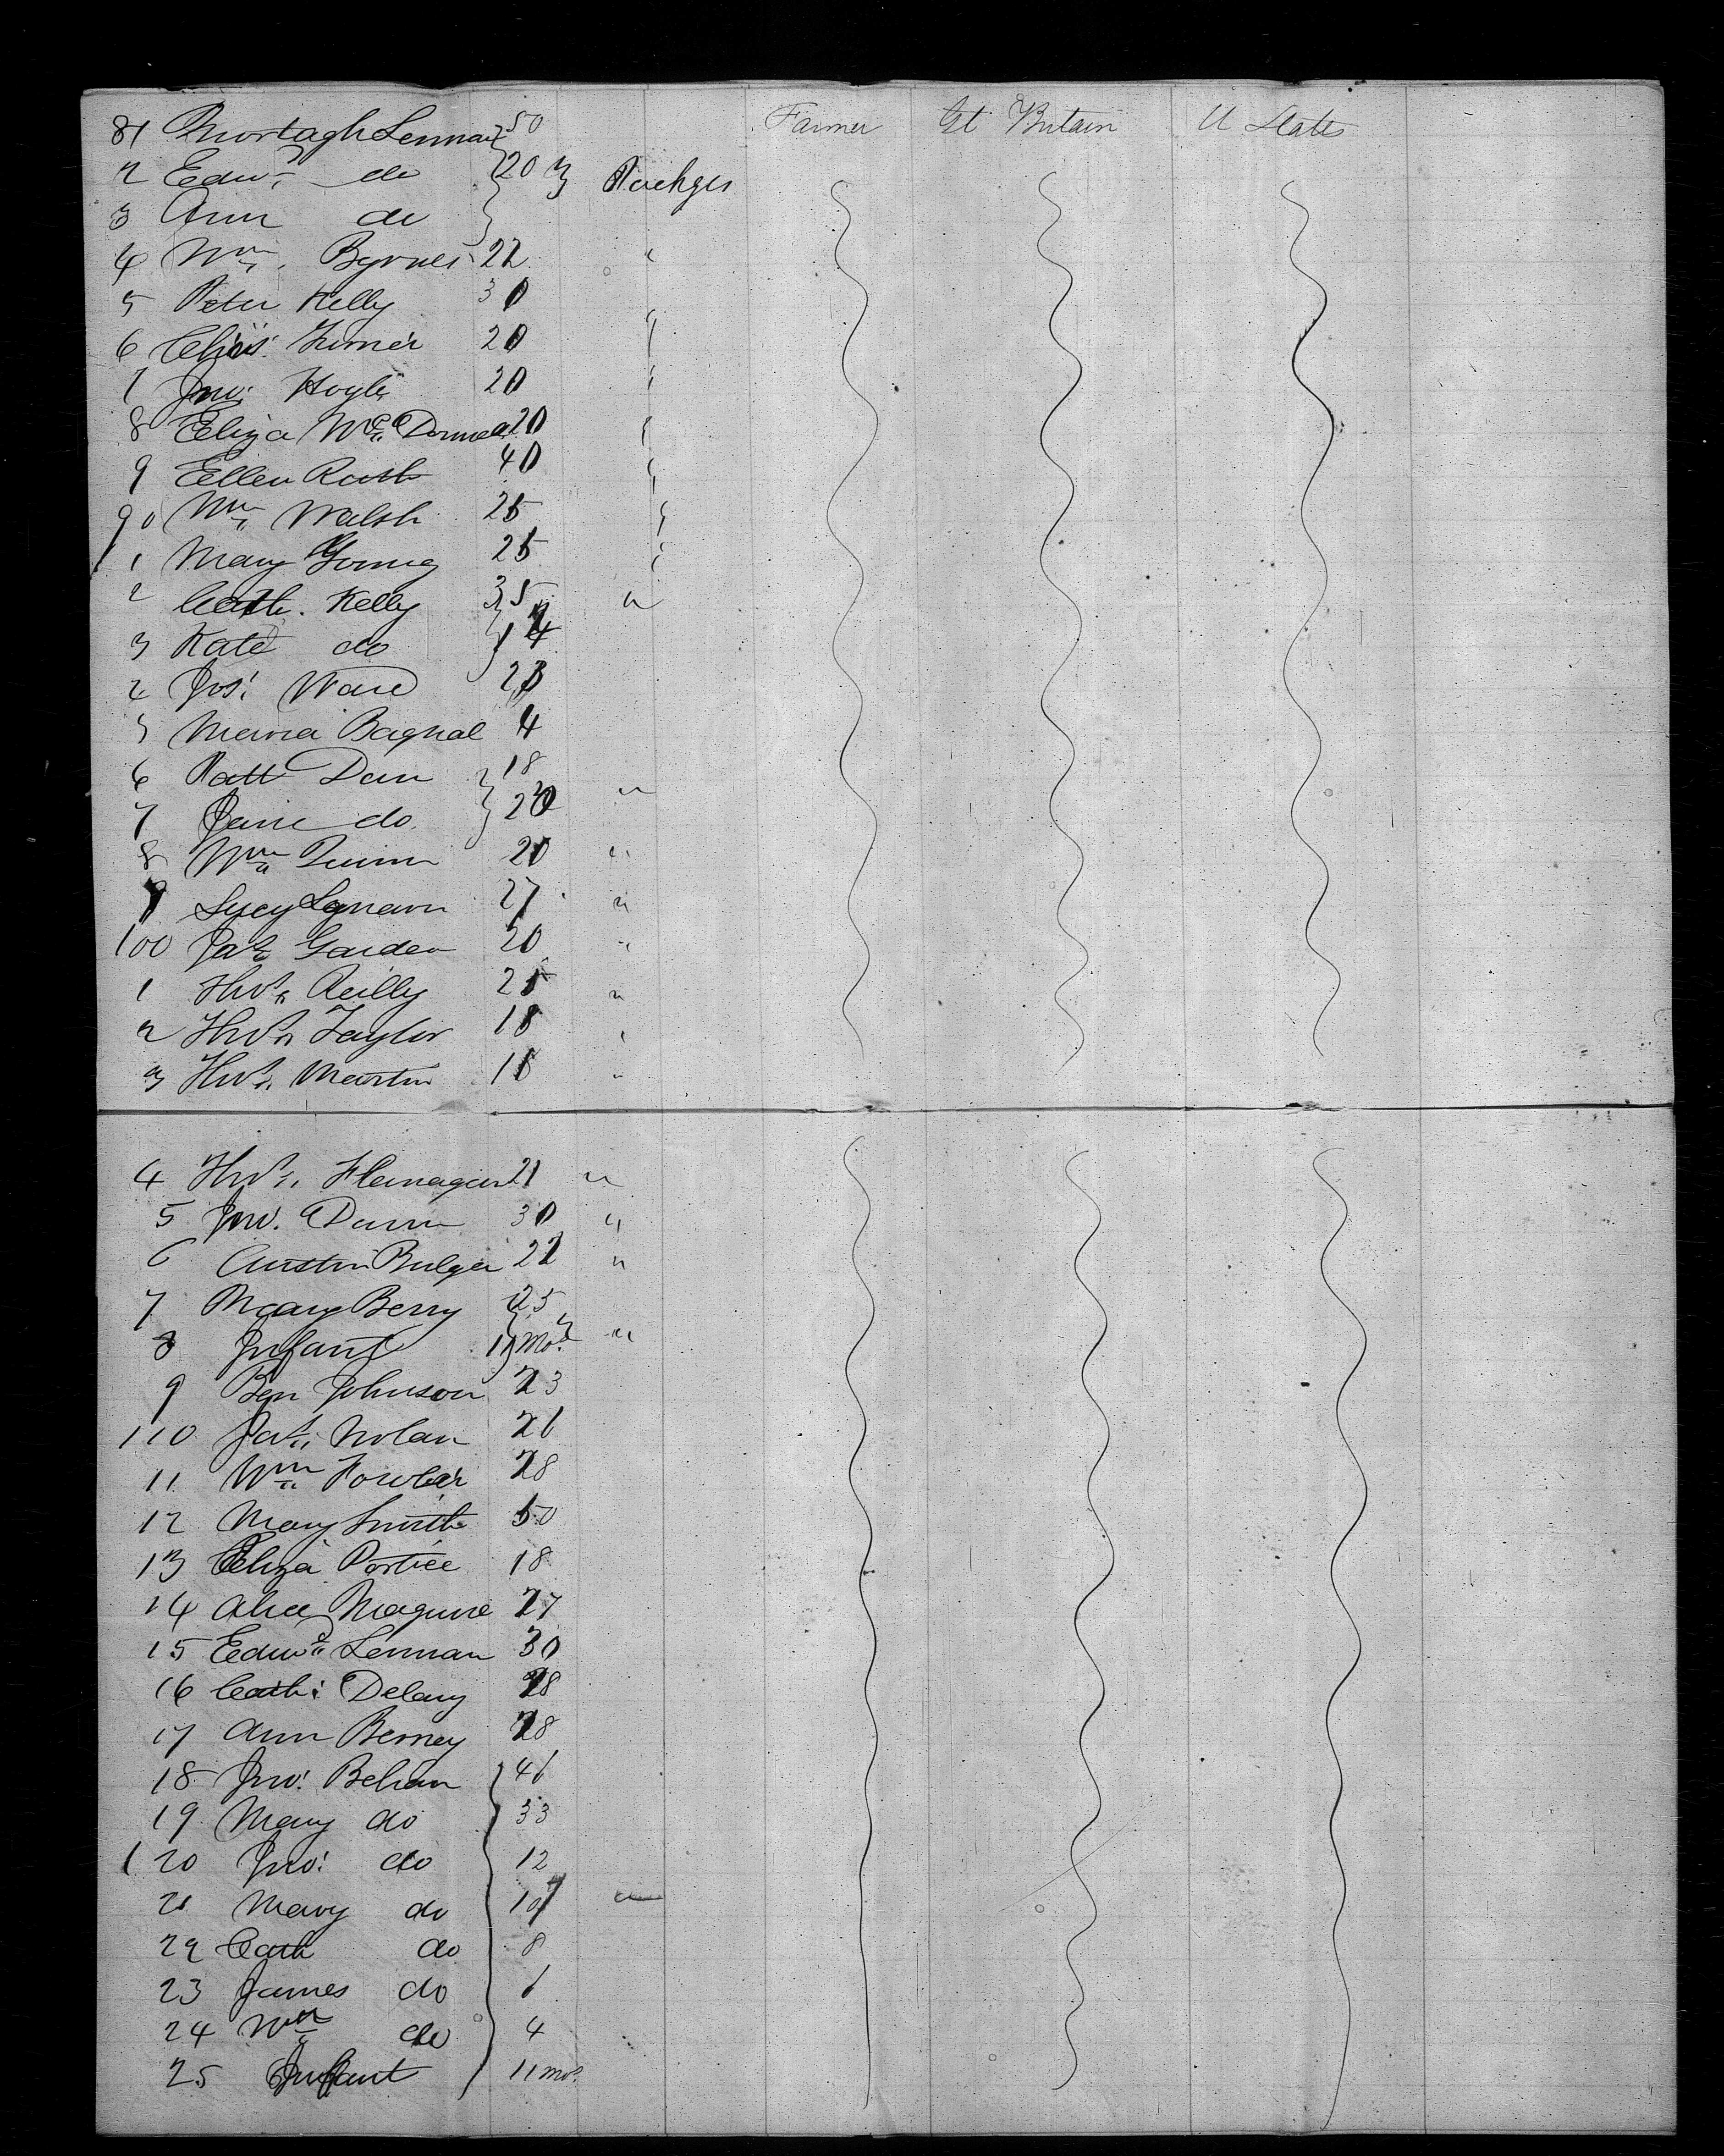 81 Mortagh Lennan 50 Farmer Gt Britain U States
2 Edwd do 20 3 Packges
3 Ann do
4 Wm Byrnes 22 "
5 Peter Kelly 30
6 Chris Turner 20 "
7 Jno: Hoyle 20 "
8 Eliza McDonnell 20 "
9 Ellen Rooth 40 "
90 Wm Walsh 25 "
1 Mary Young 25 "
2 Cath. Kelly 35 "
3 Kate do 14
4 Jos: Ward 23
5 Maria Bagnal 4
6 Patt Dun 18
7 Jane do 20 "
8 Wm Quinn 20 "
9 Lucy Lynam 27 "
100 Jas Garden 20 "
1 Thos Reilly 25 "
2 Thos Taylor 18 "
3 Thos Martin 18 "
4 Thos Flanagan 21 "
5 Jno. Dunn 30 "
6 Austin Bulger 22 "
7 Mary Berry 25
8 Infant 11 mos "
9 Ben Johnson 23
110 Jas Nolan 26
11 Wm Fowler 28
12 Mary Smith 50
13 Eliza 18
14 Alice Maguire 27
15 Edwd Lennan 30
16 Cath: Delany 28
17 Ann Berney 28
18 Jno: Behan 46
19 Mary do 33
120 Jno: do 12
21 Mary do 10 "
22 Cath do 8
23 James do 6
24 Wm do 4
25 Infant 11 mos